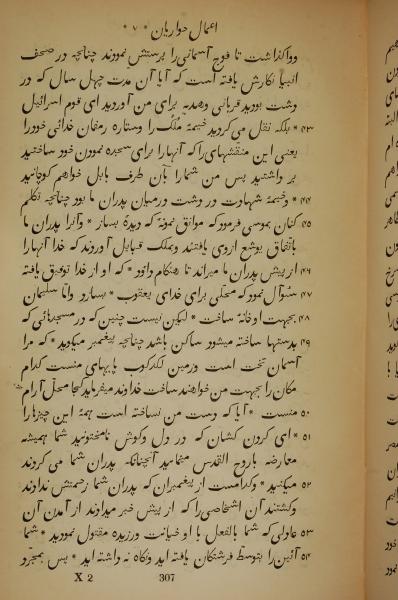 اعمال حواریان * ۷ *
وواگذاشت تا فوج آسمانی را پرستش نمودند چنانچه در صحف
انبیا نکارش یافته است که آیا آن مدت چهل سال که در
وشت بودید قربانی وهدیه برای من آوردید ای قوم اسرائیل
۴۳ * بلکه نقل می کردید خیمهٔ ملک را وستاره رمفان خدائی خودرا
یعنی این منقشهای را که آنهارا برای سجده نمودن خود ساختید
بر داشتید پس من شمارا بآن طرف بابل خواهم کوچانید
۴۴ * وخیمهٔ شهادت در وشت درمیان پدران ما بود چنانچه تکلم
۴۵ کنان بموسی فرمود که موافق نمونهٔ که دیدهٔ بساز * وآنرا پدران ما
باتفاق یوشع ازوی یافتند وبملک قبایل آوردند که خدا آنهارا
۴۶ از پیش پدران ما میراند تا هنکام داود * که او از خدا توفیق یافته
۴۷ سئوال نمود که محلی برای خدای یعقوب * بسازد وامّا سلیمان
۴۸ بجهت او خانهٔ ساخت * لیکن نیست چنین که در مسجدهائی که
۴۹ بدستها ساخته میشود ساکن باشد چنانچه پیغمبر میکوید * که مرا
آسمان تخت است وزمین لکدکوب پایهای منست کدام
مکان را بجهت من خواهند ساخت خداوند میفرماید کجا محل آرام
۵۰ منست * آیا که دست من نساخته است همهٔ این چیزهارا
۵۱ * ای کردن کشان که در دل وکوش نامختونید شما همیشه
معارضه باروح القدس مینمائید آنچنانکه پدران شما می کردند
۵۲ میکنید * وکدامست از پیغمبران که پدران شما زحمتش ندادند
وکشتند آن اشخاصی را که از پیش خبر میدادند از آمدن آن
۵۳ عادلی که شما بالفعل با او خیانت ورزیده مقتول نمودید * شما
۵۴ آئین را بتوسط فرشتکان یافته اید ونکاه نه داشته اید * پس بمجرّد
X 2 307